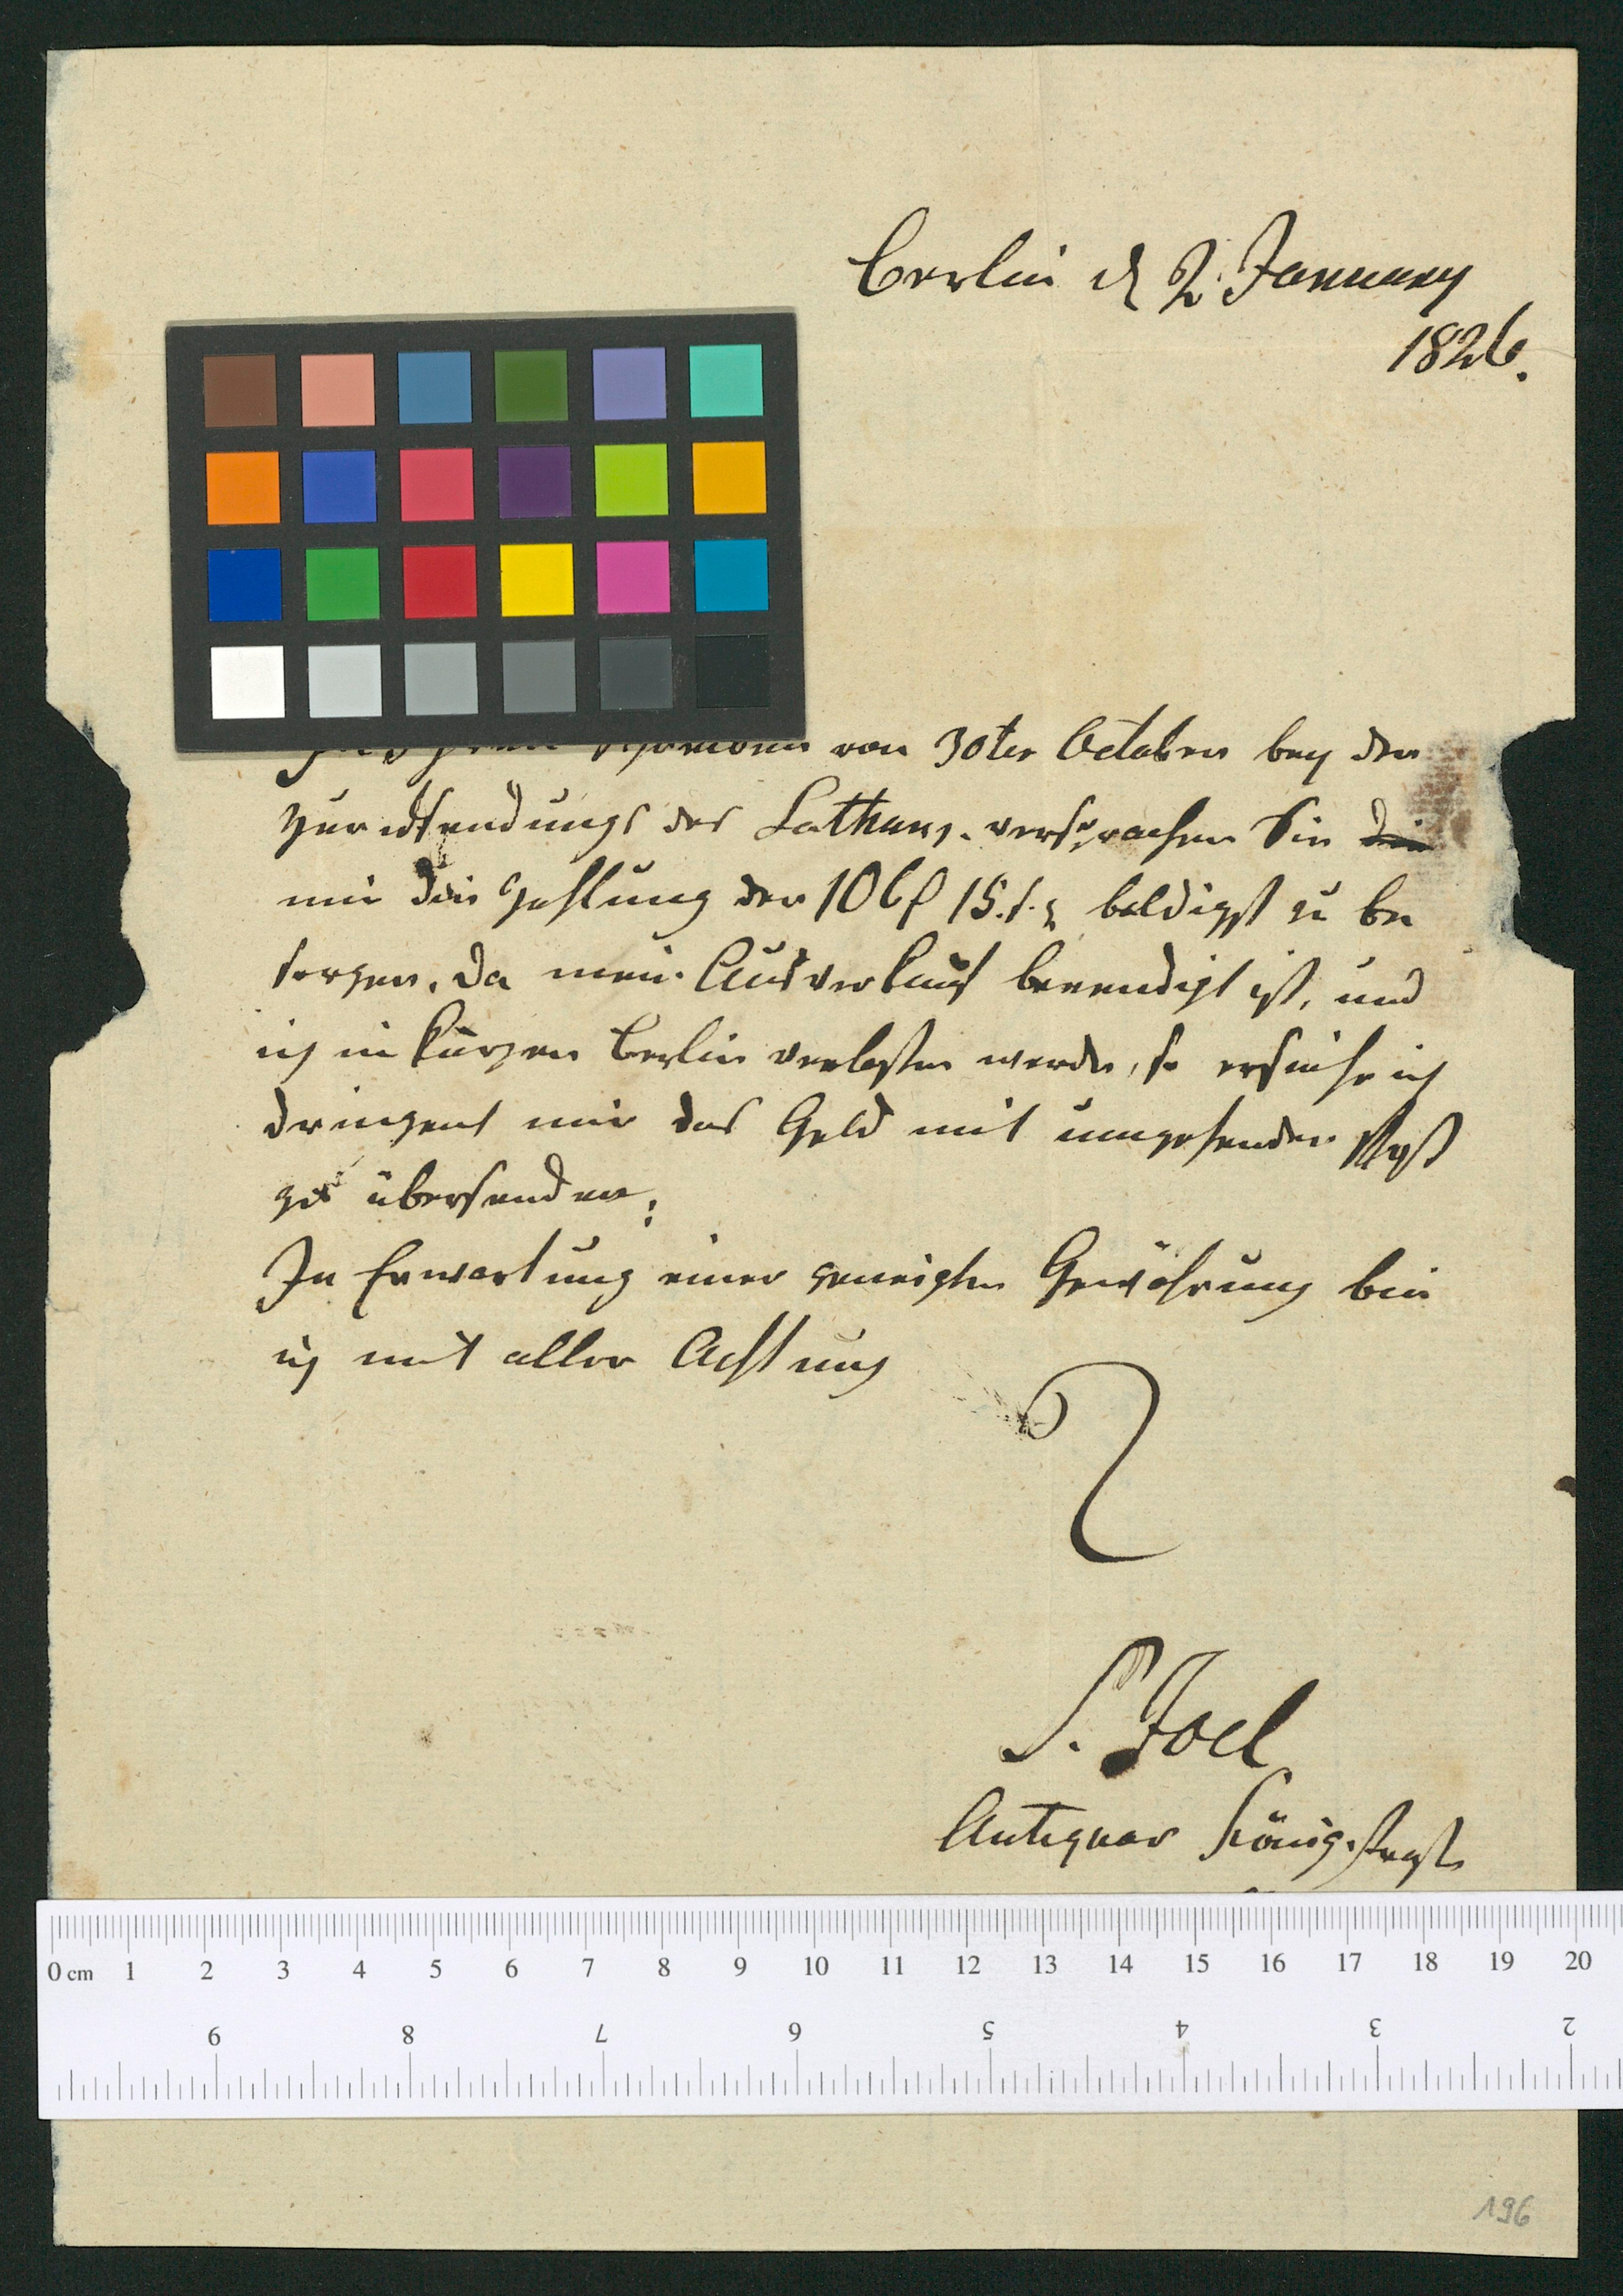 Berlin d 2 January
1826.
von 30ter October bey der
Zurücksendungs des versprachen Sie die
mir die Zahlung der 106 15 baldigst zu be
sorgen. Da mein Ausverkauf beendigt ist, und
ich in kurzen Berlin verlassen werde, so ersuche ich
dringent mir das Geld mit umgehender Post
zu übersenden.
In Erwartung einer geneigten Gewährung bin
ich mit aller Achtung
S. Joel
Antiquar Königstraße
0 cm 1 2 3 4 5 6 7 8 9 10 11 12 13 14 15 16 17 18 19 20
9 8 7 6 5 4 3 2
196